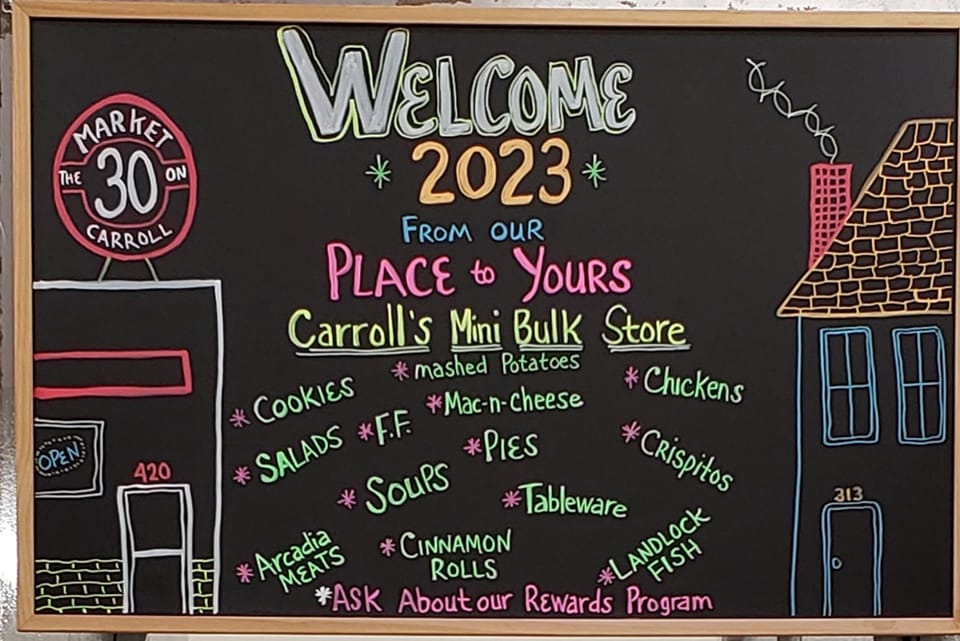 WELCOME
2023
FROM OUR
PLACE to YOURS
Carroll's Mini Bulk Store
MARKET
THE 30 ON
CARROLL
OPEN
420
* mashed Potatoes
* COOKIES
* Mac-n-Cheese
* Chickens
* SALADS
* F.F.
* PIES
* Crispitos
* SOUPS
* Tableware
* Arcadia
MEATS
* CINNAMON
ROLLS
* LANDLOCK
FISH
313
*ASK About our Rewards Program